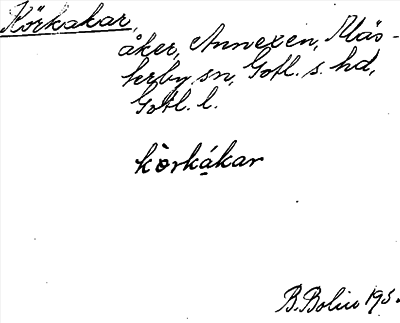 Körkakar,
åker, Annexen, Mäs-
terby sn, Gotl. s. hd,
Gotl. l.
kòrkákar
B. Bolin 195.